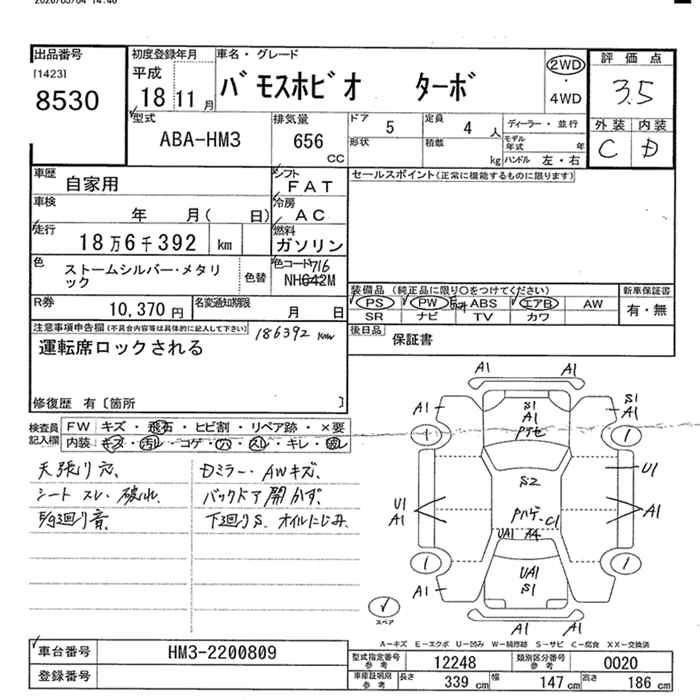 出品番号
[1423]
8530
初度登録年月
平成
18 11 月
車名・グレード
バモスホビオ ターボ
2WD
・
4WD
評価点
3.5
外装 内装
C D
型式
ABA-HM3
排気量
656
CC
ドア 5
定員 4 人
形状
積載 kg
ディーラー・並行
モデル年式 年
ハンドル 左・右
車歴
自家用
シフト
FAT
車検
年 月( 日)
冷房
AC
走行
18万6千392 km
燃料
ガソリン
色
ストームシルバー・メタリ
ック
色替
色コード 716
NH642M
R券
10,370 円
名変通知期限
月 日
セールスポイント(正常に機能するものに限ります)
装備品 (純正品に限り○をつけてください)
PS PW ABS エアB AW
SR ナビ TV カワ
新車保証書
有・無
後日品
保証書
注意事項申告欄(不具合内容等は具体的に記入して下さい)
186392 km
運転席ロックされる
修復歴 有〔箇所 〕
検査員
記入欄
FW キズ・飛石・ヒビ割・リペア跡・×要
内装 キズ・汚レ・コゲ・穴・スレ・キレ・破レ
天張り穴、
シート スレ・破れ、
Dミラー・AWキズ、
バックドア開かず、
下廻りS、オイルにじみ、
A1 A1
A1
S1
A1
S1
A1
1 1
U1
S2
U1
A1
A1
C1
UA1
1 1
UA1
S1
A1
A1 A1
スペア
A-キズ E-エクボ U-凹み W-補修跡 S-サビ C-腐食 XX-交換済
車台番号
HM3-2200809
登録番号
型式指定番号
参考
12248
類別区分番号
参考
0020
車庫証明用
参考
長さ 339 cm
幅 147 cm
高さ 186 cm